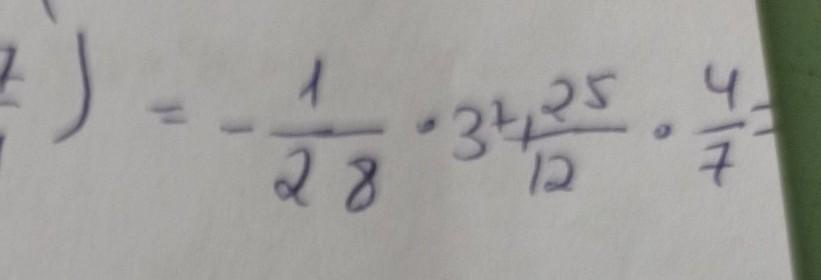 ) = - 1/28 · 3² + 25/12 · 4/7 =